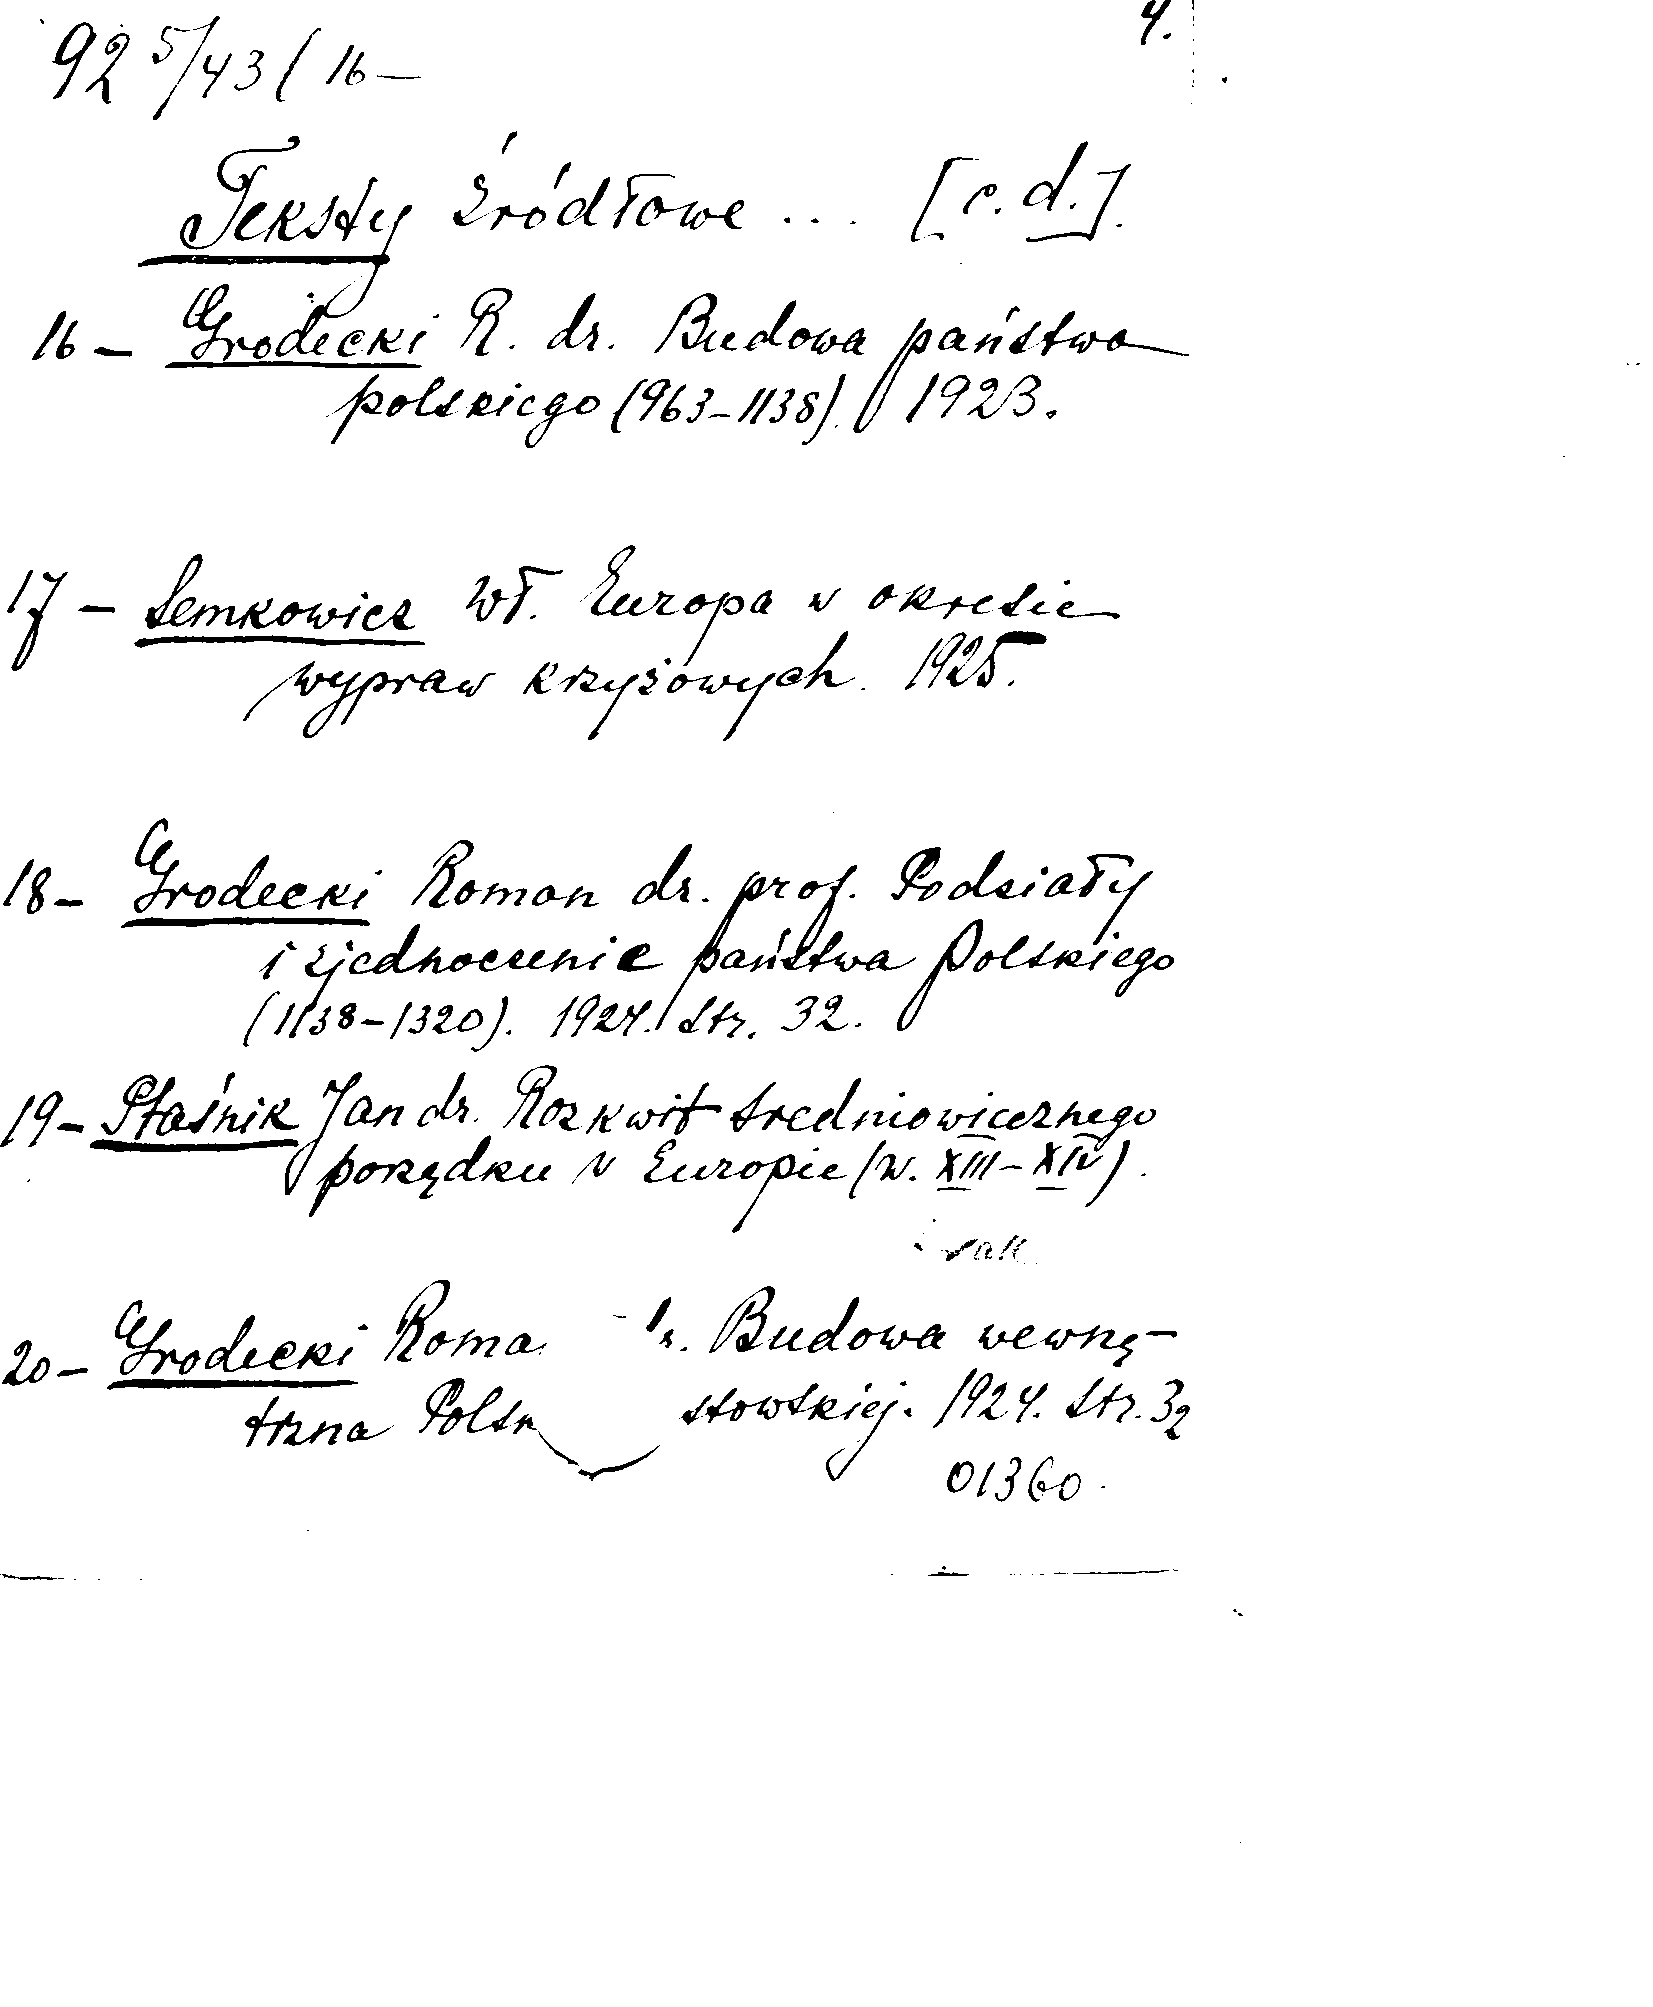 4.
92 5/43 (16—
Teksty źródłowe ... [c.d.].
16 — Grodecki R. dr. Budowa państwa
polskiego (963-1138). 1923.
17 — Semkowicz Wł. Europa w okresie
wypraw krzyżowych. 1925.
18 — Grodecki Roman dr. prof. Podziały
i zjednoczenie państwa Polskiego
(1138-1320). 1924. Str. 32.
19 — Ptaśnik Jan dr. Rozkwit średniowiecznego
porządku w Europie (w. XIII-XIV).
20 — Grodecki Roma Budowa wewnę-
trzna Pols stowskiej. 1924. Str. 32
01360.